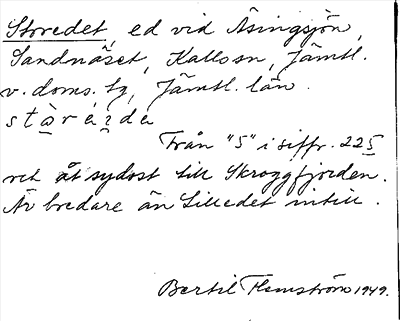 Storedet, ed vid Åsingsjön,
Sandnäset, Kallsn, Jämtl.
v. doms. tg, Jämtl. län.
Från "5" i siffr. 225
rct åt sydost till Skroggfjorden.
Är bredare än Lilledet intill.
Bertil Flemström 1949.